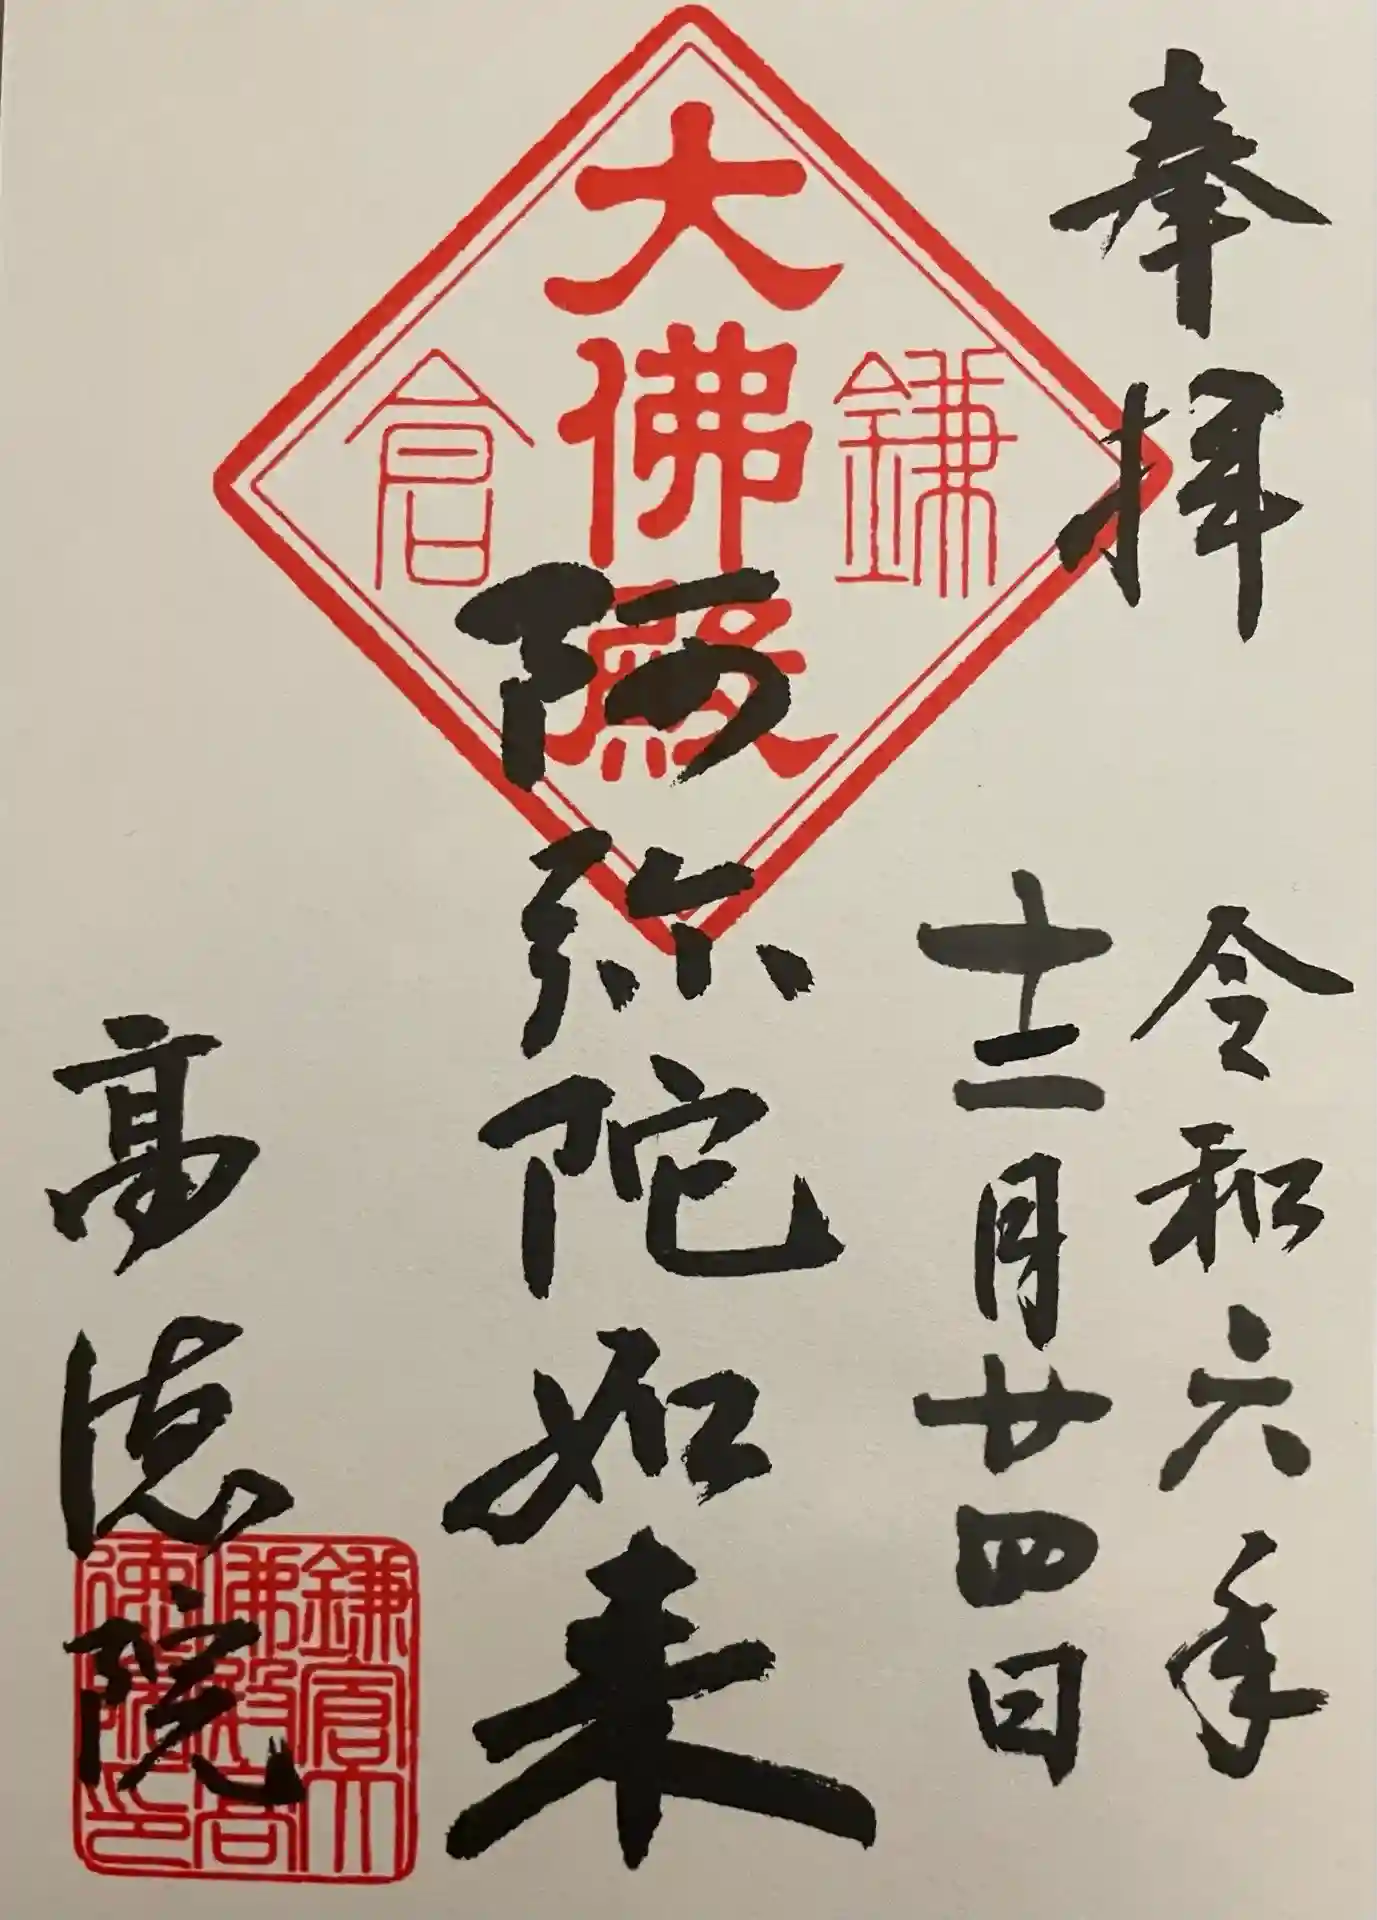 奉拝
令和六年
十二月廿四日
大佛殿
鎌倉
阿弥陀如来
高徳院
鎌倉大
佛殿高
徳院印